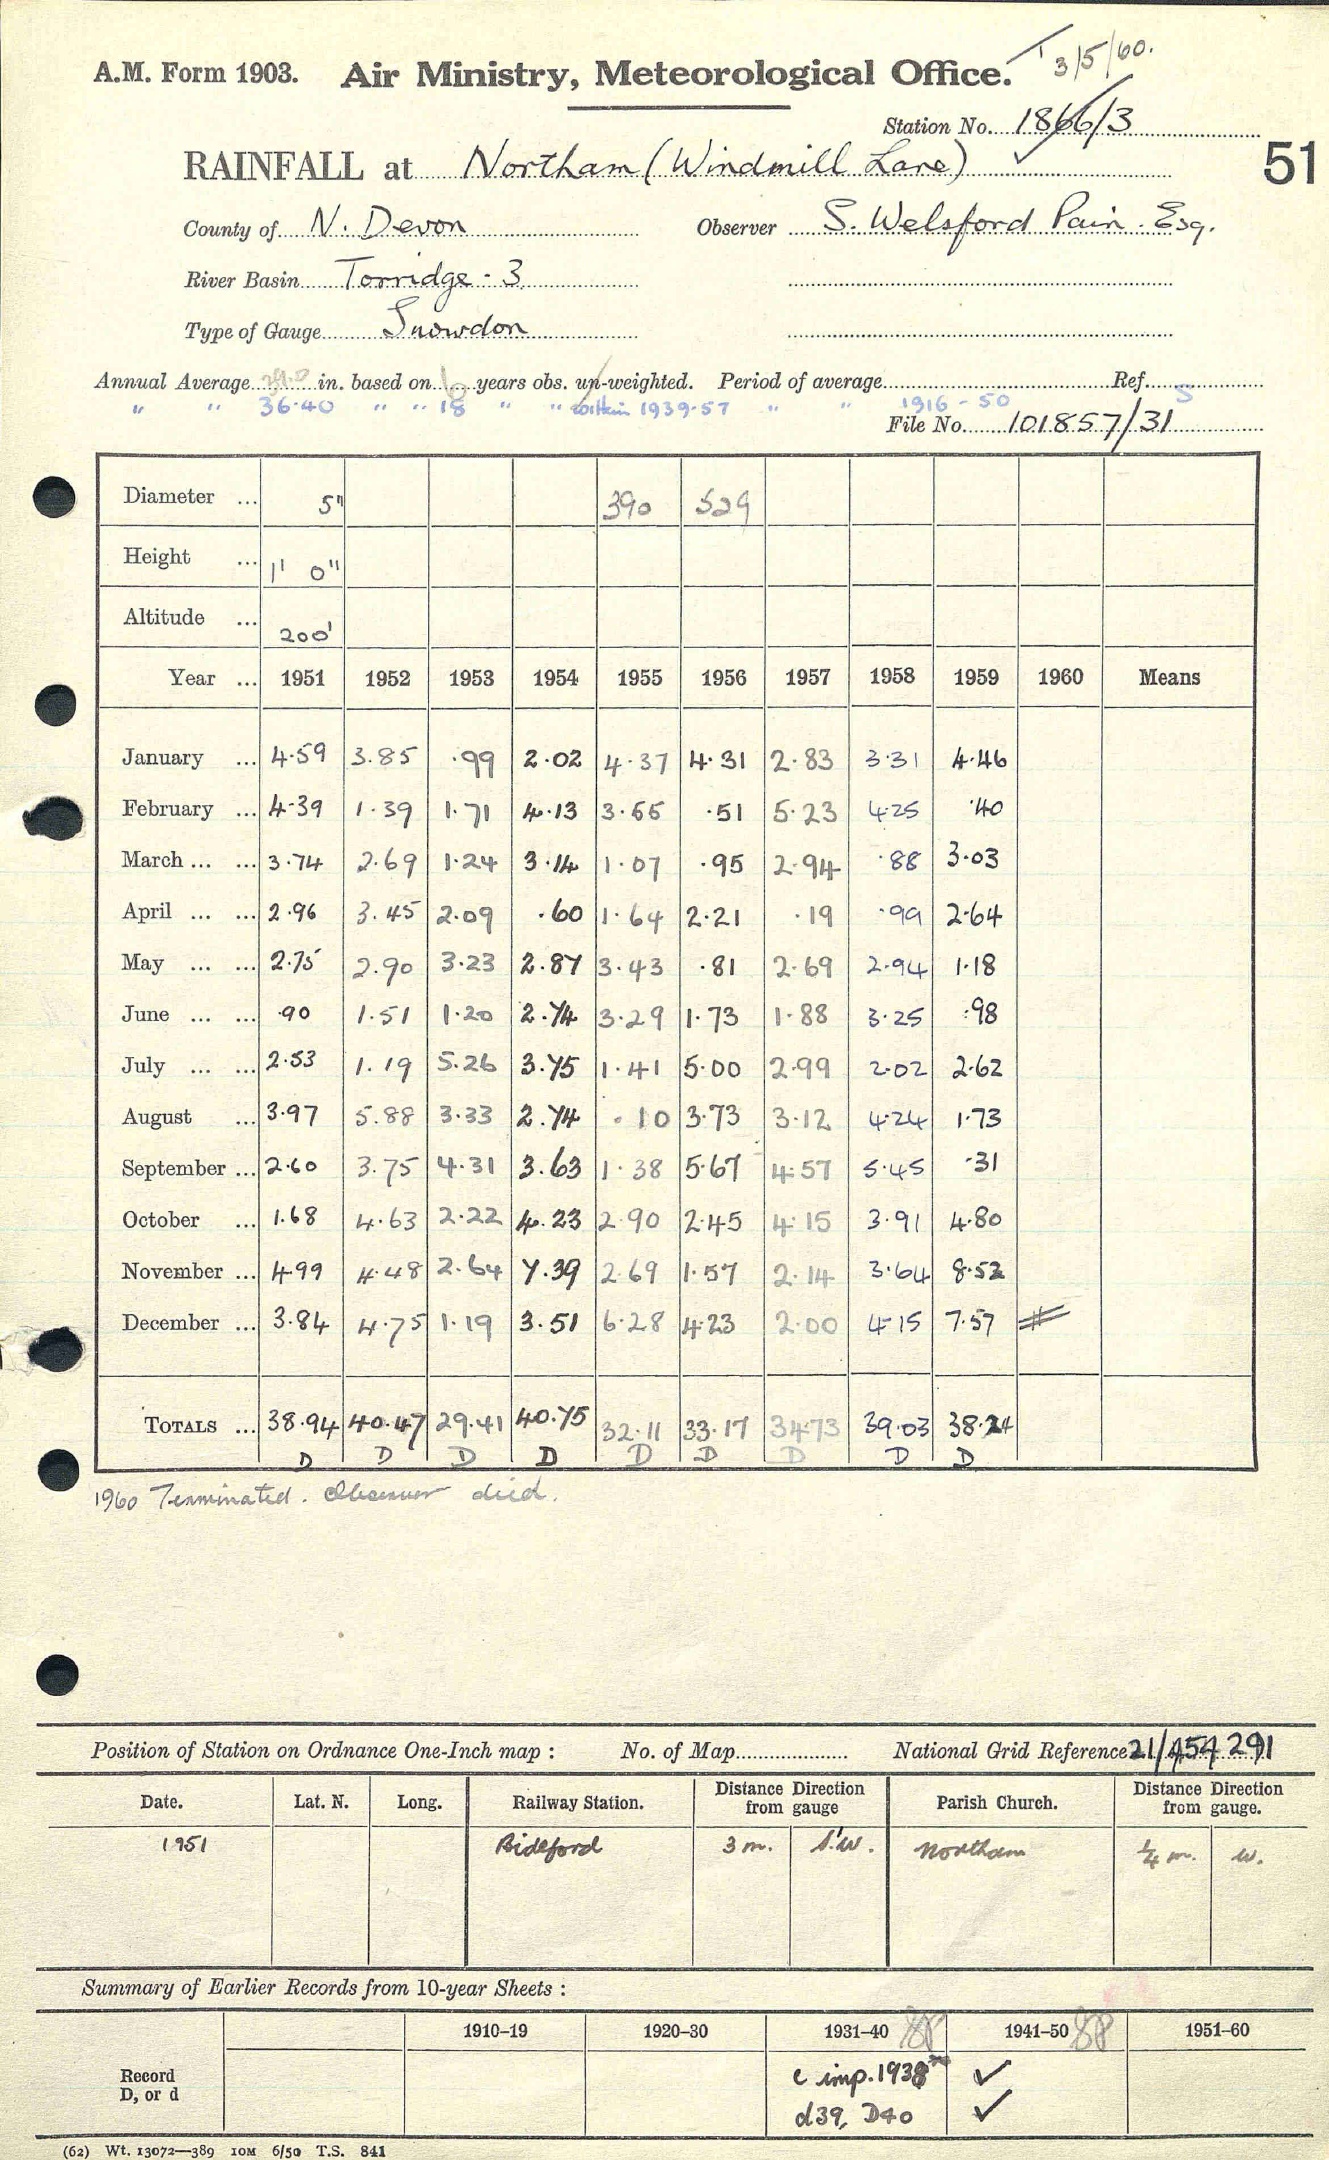 T 3/5/60.
A.M. Form 1903. Air Ministry, Meteorological Office.
Station No. 1866/3
51
RAINFALL at Northam (Windmill Lane)
County of N. Devon Observer S. Welsford Pain. Esq.
River Basin Torridge - 3
Type of Gauge Snowdon
Annual Average in. based on years obs. un-weighted. Period of average Ref. S
" " 36.40 " " 18 " " within 1939-57 " " 1916 - 50
File No. 101857/31
Diameter ... 5" 390 529
Height ... 1' 0"
Altitude ... 200'
Year ... 1951 1952 1953 1954 1955 1956 1957 1958 1959 1960 Means
January ... 4.59 3.85 .99 2.02 4.37 4.31 2.83 3.31 4.46
February ... 4.39 1.39 1.71 4.13 3.55 .51 5.23 4.25 .40
March ... ... 3.74 2.69 1.24 3.14 1.07 .95 2.94 .88 3.03
April ... ... 2.96 3.45 2.09 .60 1.64 2.21 .19 .99 2.64
May ... ... 2.75 2.90 3.23 2.87 3.43 .81 2.69 2.94 1.18
June ... ... .90 1.51 1.20 2.74 3.29 1.73 1.88 3.25 .98
July ... ... 2.53 1.19 5.26 3.75 1.41 5.00 2.99 2.02 2.62
August ... 3.97 5.88 3.33 2.74 .10 3.73 3.12 4.24 1.73
September ... 2.60 3.75 4.31 3.63 1.38 5.67 4.57 5.45 .31
October ... 1.68 4.63 2.22 4.23 2.90 2.45 4.15 3.91 4.80
November ... 4.99 4.48 2.64 7.39 2.69 1.57 2.14 3.64 8.52
December ... 3.84 4.75 1.19 3.51 6.28 4.23 2.00 4.15 7.57
TOTALS ... 38.94 40.47 29.41 40.75 32.11 33.17 34.73 39.03 38.24
D D D D D D D D D
1960 Terminated. Observer died.
Position of Station on Ordnance One-Inch map : No. of Map National Grid Reference 21/454 291
Date. Lat. N. Long. Railway Station. Distance Direction from gauge Parish Church. Distance Direction from gauge.
1951 Bideford 3 m. S.W. Northam 1/4 m. W.
Summary of Earlier Records from 10-year Sheets :
1910–19 1920–30 1931–40 1941–50 1951–60
Record c imp. 1938 ✓
D, or d d39, D40 ✓
(62) Wt. 13072—389 10M 6/50 T.S. 841